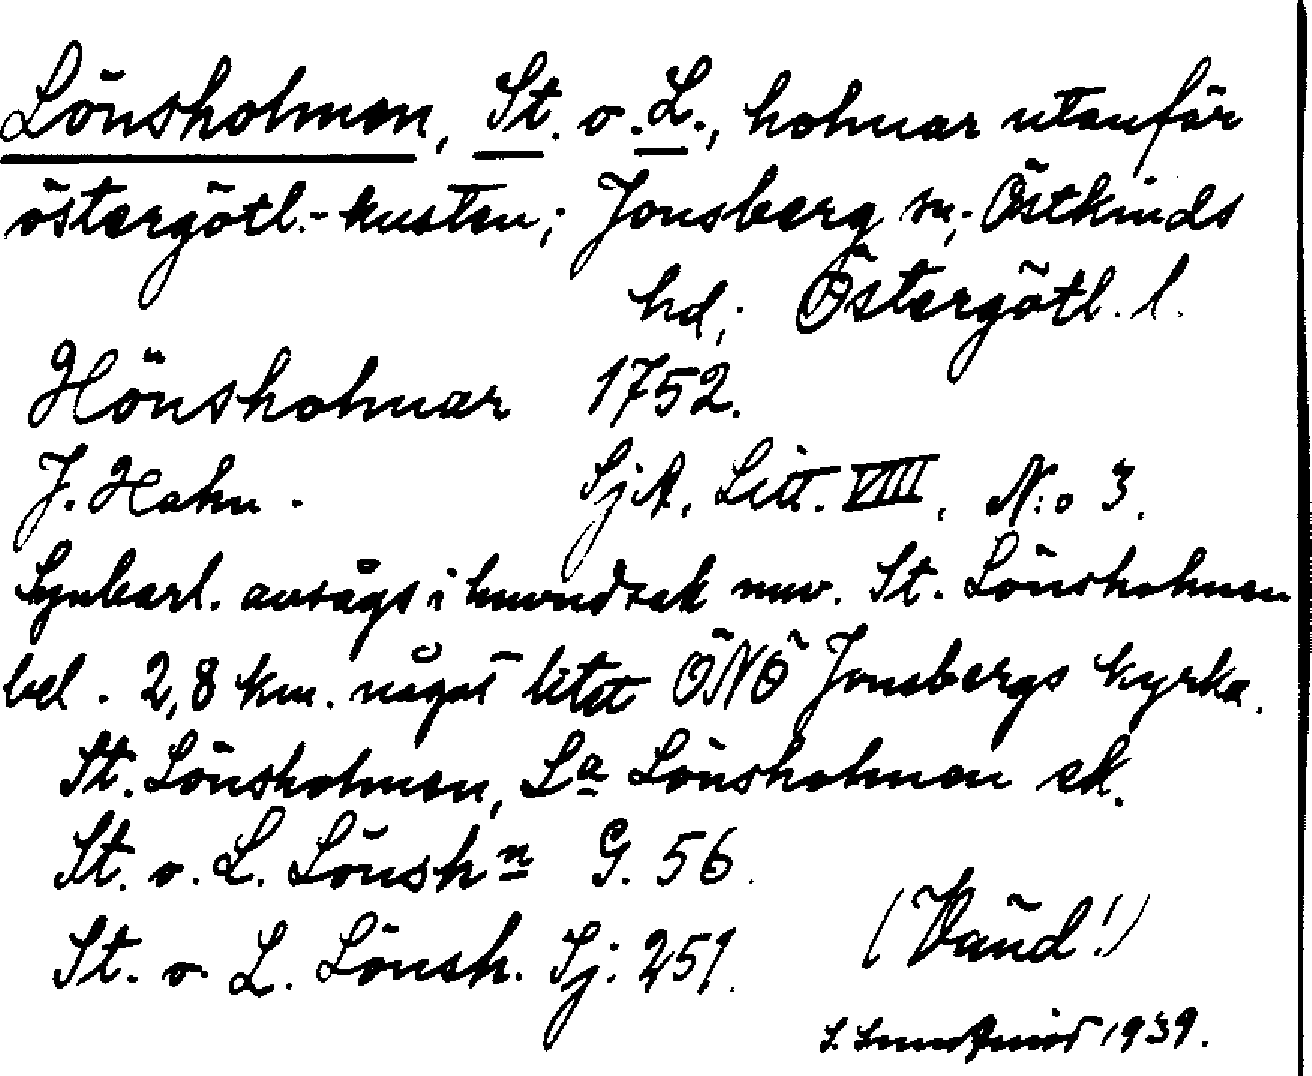 Lönsholmen, St. o. L., holmar utanför
östergötl.-kusten; Jonsberg sn; Östkinds
hd; Östergötl. l.
Hönsholmar 1752.
J. Hahn. SjA. Litt. VIII, N:o 3.
Synbarl. avsågs i huvudsak nuv. St. Lönsholmen
bel. 2,8 km. något litet ÖNÖ Jonsbergs kyrka.
St. Lönsholmen, La Lönsholmen ek.
St. o. L. Lönshn G. 56.
St. o. L. Lönsh. Sj. 251.
(Vänd!)
S. 1939.